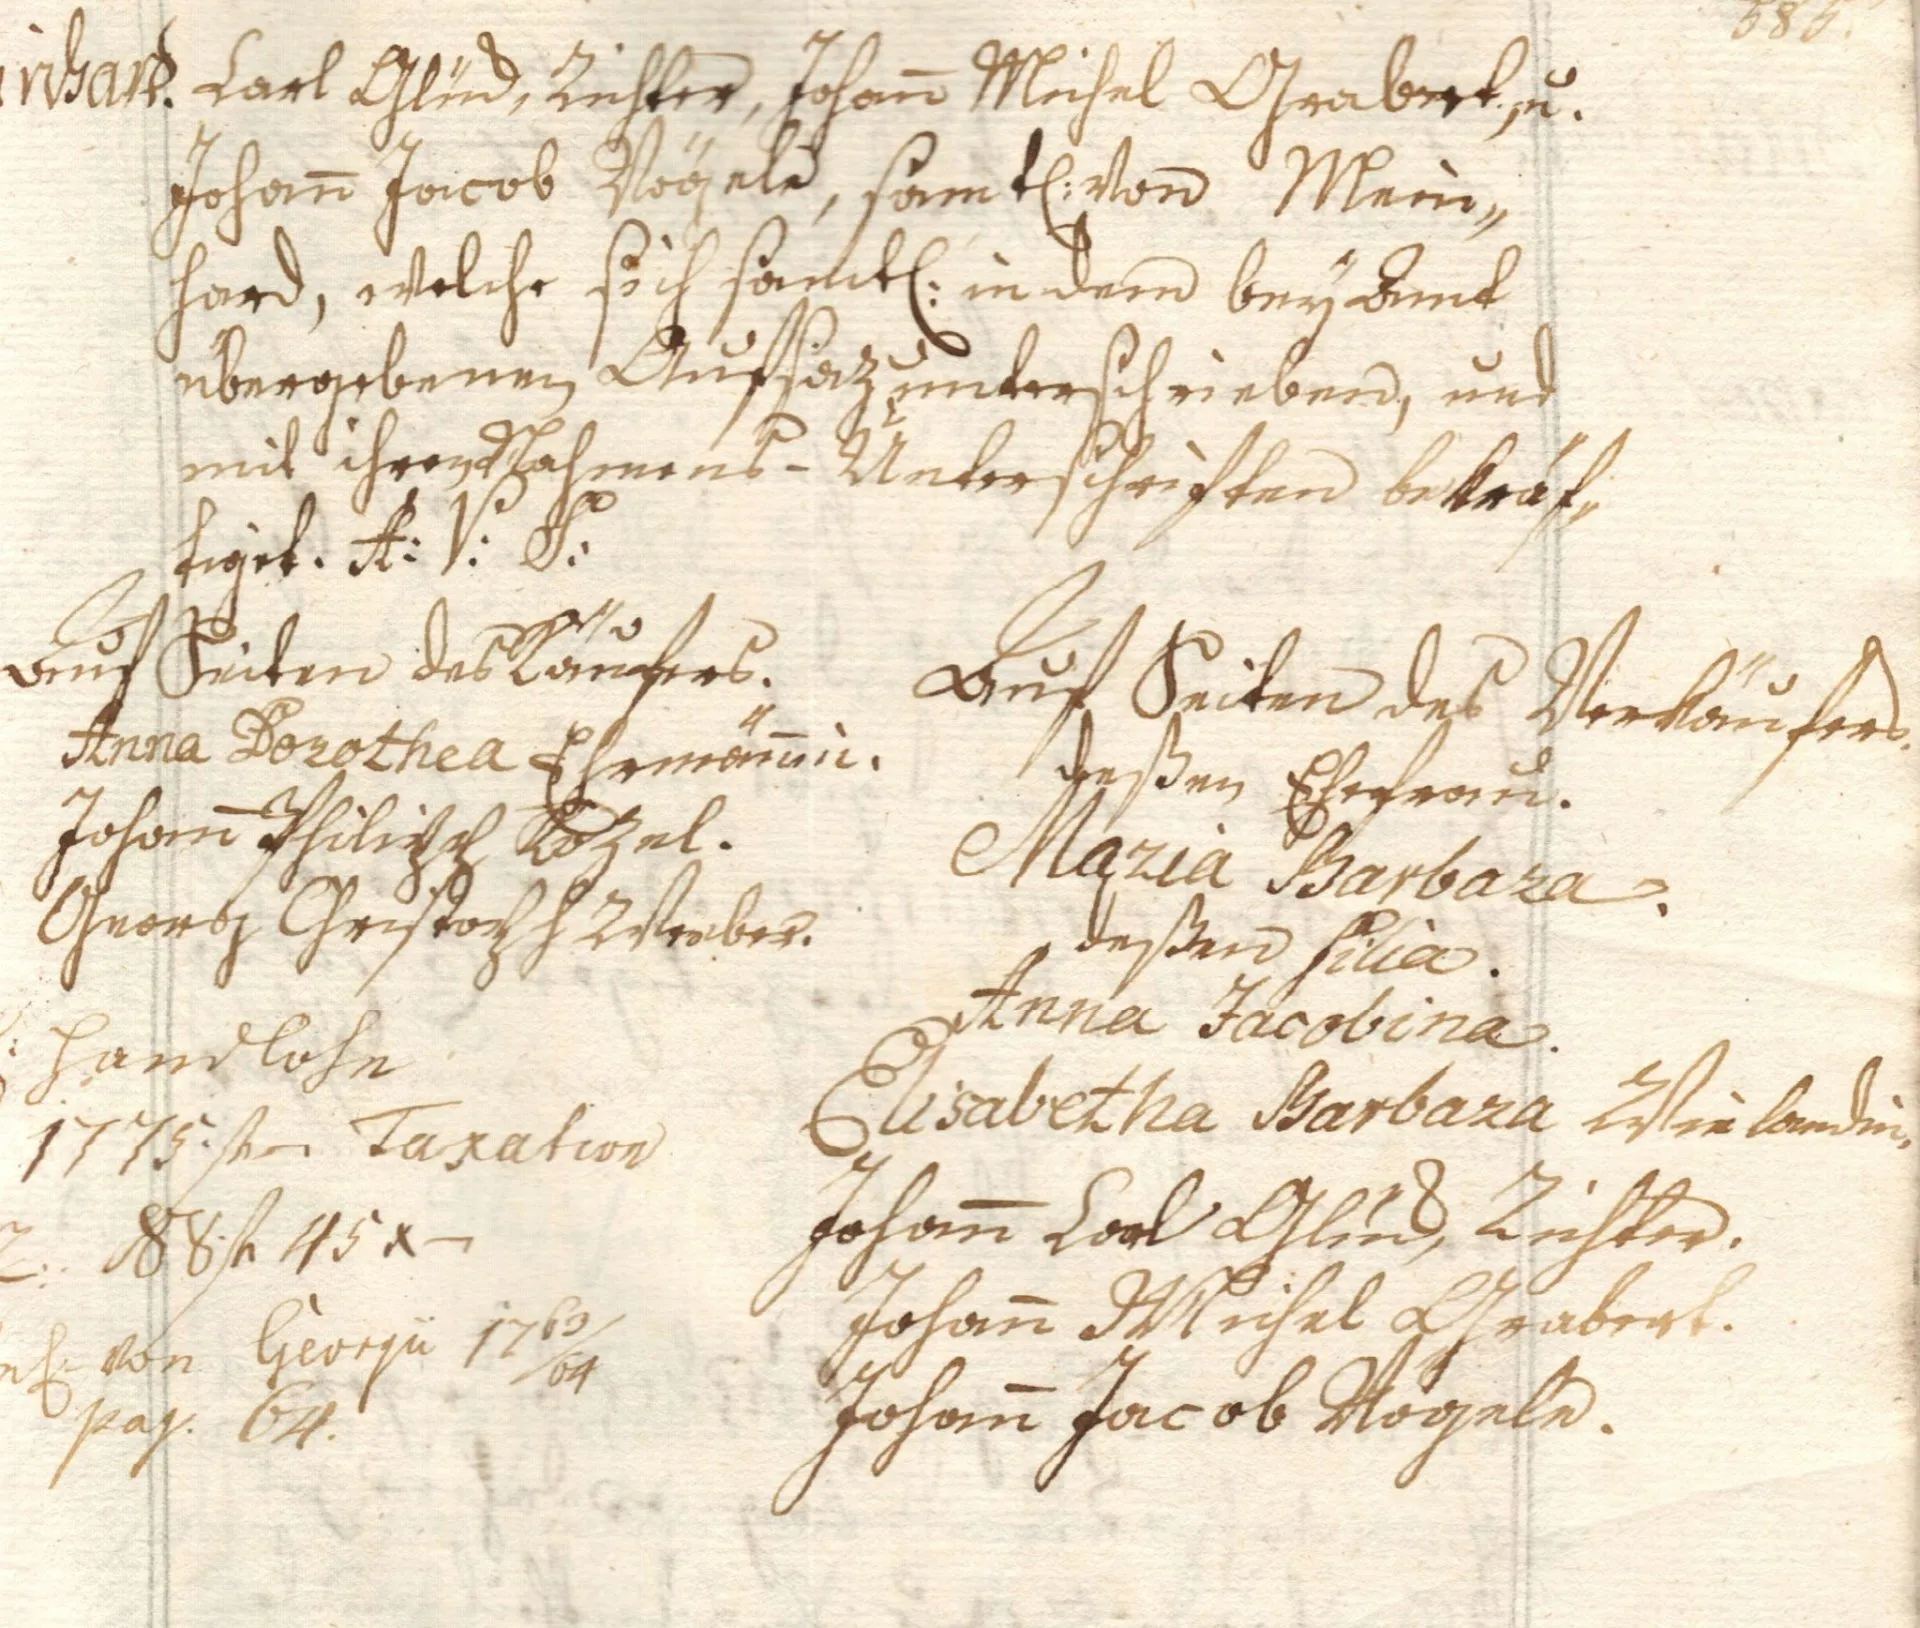 585.
inhard. Carl Glück, Richter, Johan̄ Michel Grabert, u.
Johan̄ Jacob Vögele, samtl: von Mein„
hard, welche sich samtl: in dem bey Amt
übergebenen Aufsaz unterschrieben, und
mit ihren Nahmens-Unterschrifften bekräf„
tiget. A: V: S:
Auf Seiten des Käufers.
Anna Dorothea Ehrmän̄in.
Johan̄ Philipp Kozel.
Georg Christoph Weeber.
Handlohn
1775 f Taxation
88 f 45 x
von Georgii 1763/64
pag. 64.
Auf Seiten des Verkäufers.
deßen Ehefrau.
Maria Barbara.
deßen filia.
Anna Jacobina.
Elisabetha Barbara Wielandin.
Johan̄ Carl Glück, Richter.
Johan̄ Michel Grabert.
Johan̄ Jacob Vögele.